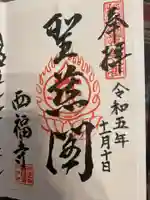 奉拝
令和五年
十一月十日
聖慈閣
西福寺